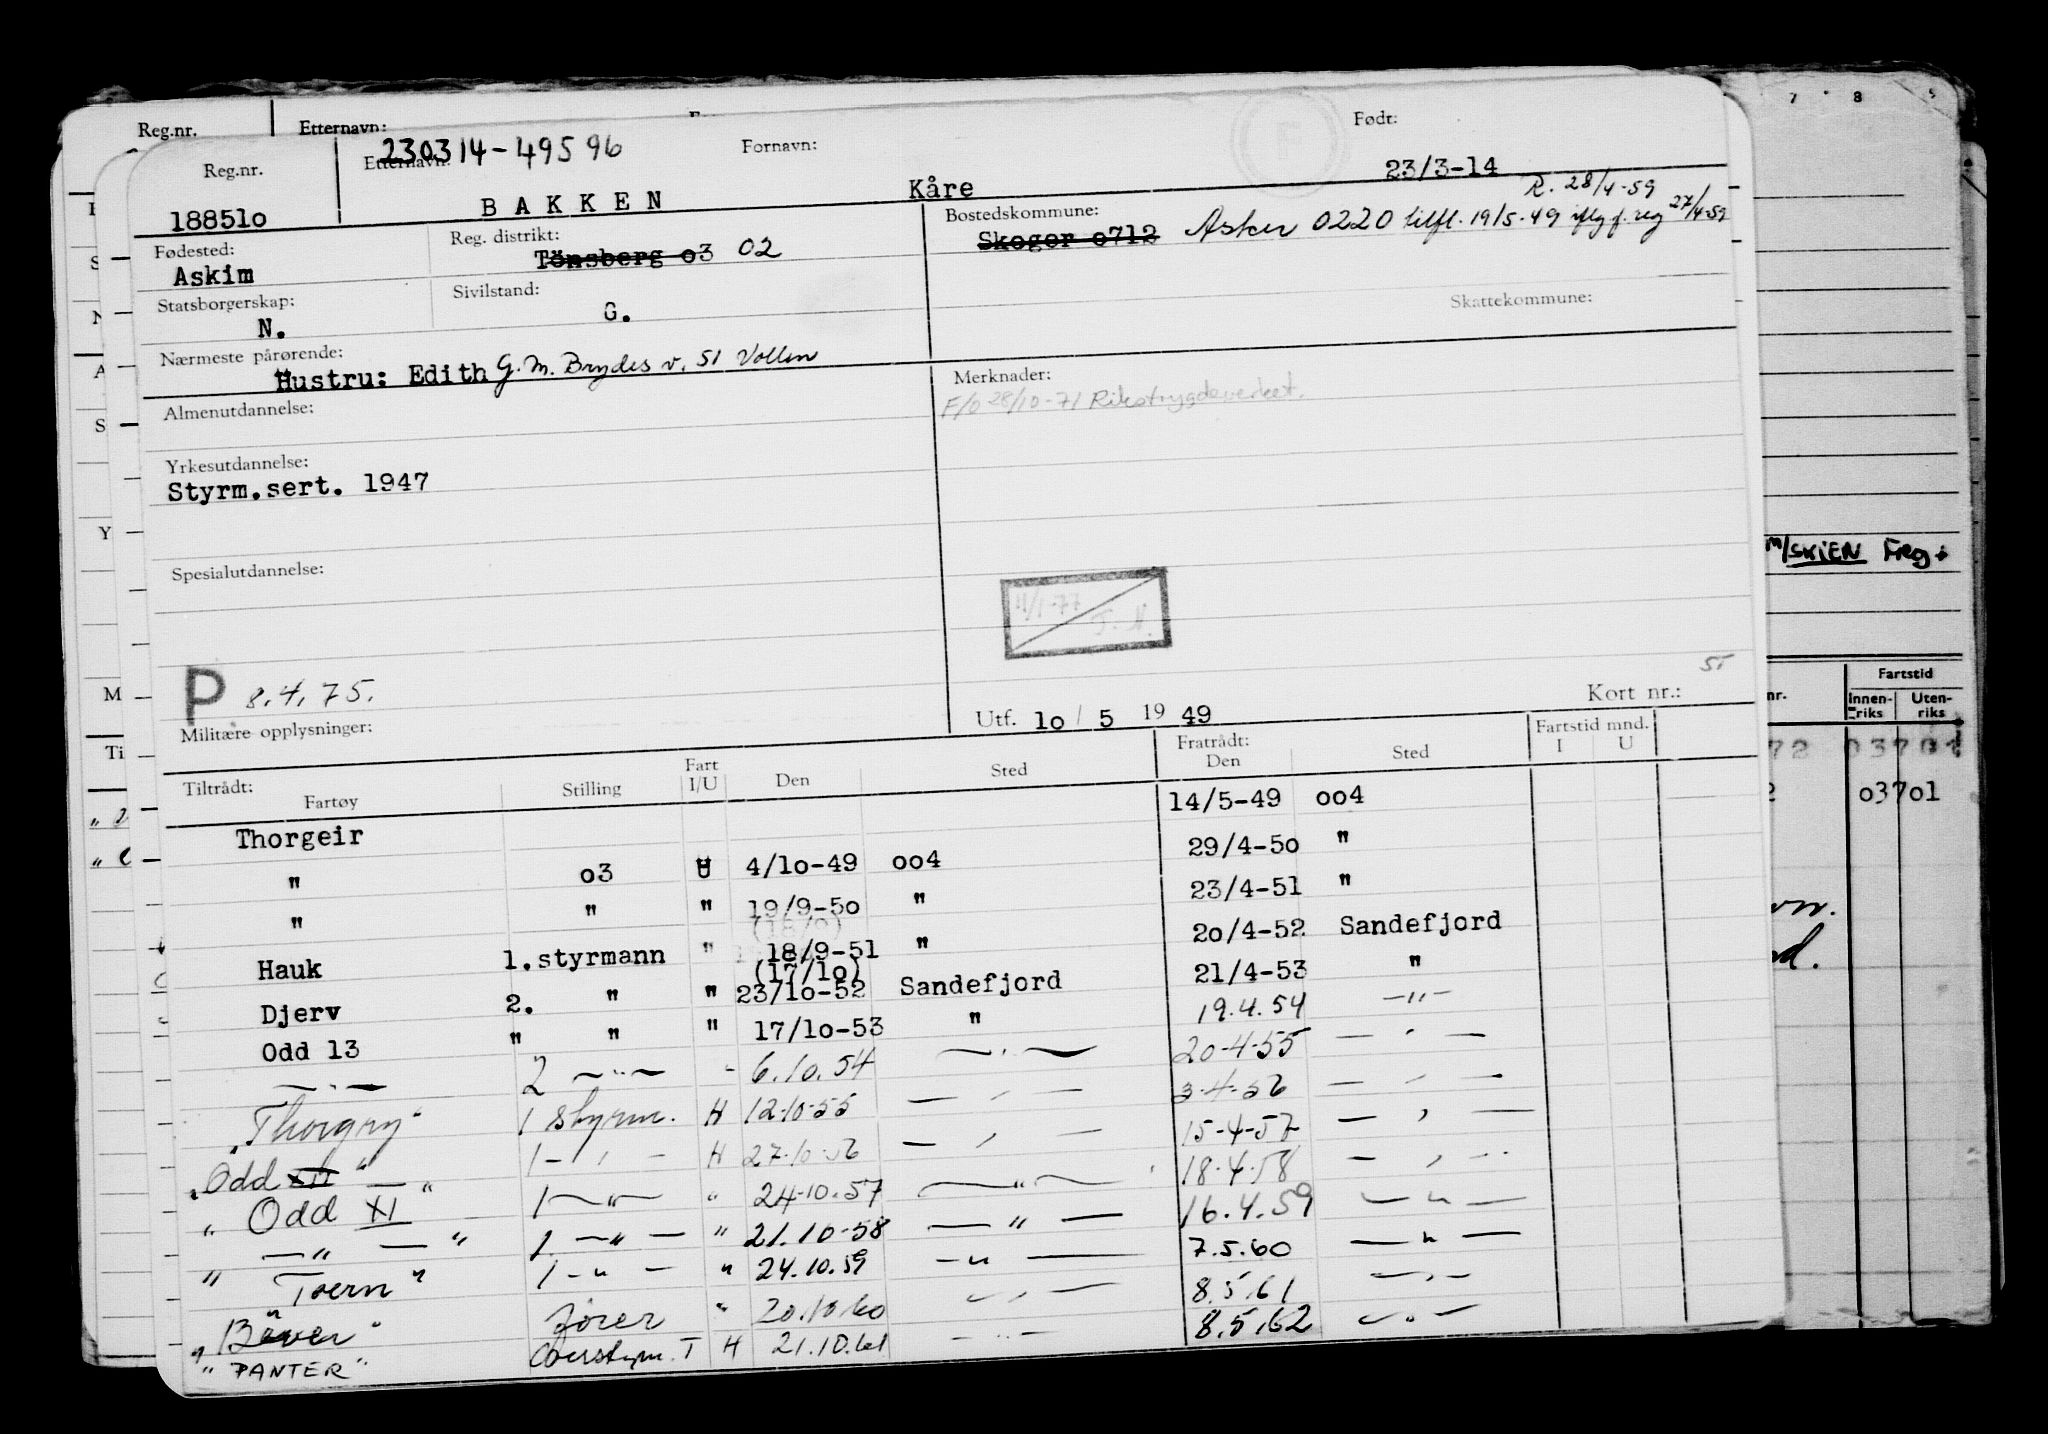 7 8 9
Reg.nr. Etternavn: Født:
Reg.nr. Etternavn: 230314-49596 Fornavn:
188510 BAKKEN Kåre 23/3-14
R. 28/4-59
Fødested: Reg. distrikt: Bostedskommune:
Askim Tönsberg o3 02 Skoger o712 Asker 0220 tilfl. 19/5-49 iflg f. reg 27/4-59
Statsborgerskap: Sivilstand: Skattekommune:
N. G.
Nærmeste pårørende:
Hustru: Edith G. M. Brydes v. 51 Vollen
Almenutdannelse: Merknader:
F/o 28/10-71 Rikstrygdeverket.
Yrkesutdannelse:
Styrm.sert. 1947
m/SKIEN Freg.
Spesialutdannelse:
11/1-77
T. H.
P 8.4.75.
51
Militære opplysninger: Utf. 1o / 5 19 49 Kort nr.:
nr. Fartstid
Innen-riks Uten-riks
Tiltrådt: Fratrådt: Fartstid mnd.
Fartøy Stilling Fart I/U Den Sted Den Sted I U
72 03701
2 03701
Thorgeir 14/5-49 oo4
" o3 U 4/1o-49 oo4 29/4-5o "
" " " 19/9-5o " 23/4-51 "
(18/9)
Hauk 1.styrmann " 18/9-51 " 2o/4-52 Sandefjord
(17/1o)
Djerv 2. " " 23/1o-52 Sandefjord 21/4-53 "
Odd 13 " " " 17/1o-53 " 19.4.54 —"—
—"— 2 —"— " 6.10.54 —"— 20-4-55 — " —
"Thorgry" 1 styrm. H 12-10-55 — " — 3-4-56 — " —
"Odd XII" 1 — " — H 27-10-56 — " — 15-4-57 — " —
" Odd XI — " 1 —"— " 24-10.57 —"— 18-4-58 — " —
" —"— " 1. —"— " 21.10-58 —"— 16.4.59 —"—
" Toern " 1 —"— " 24.10.59 —"— 7.5.60 —"—
"Bever" fører " 20.10.60 —"— 8.5.61 —"—
"PANTER" Overstyrm. T H 21.10.61 —"— 8.5.62 —"—